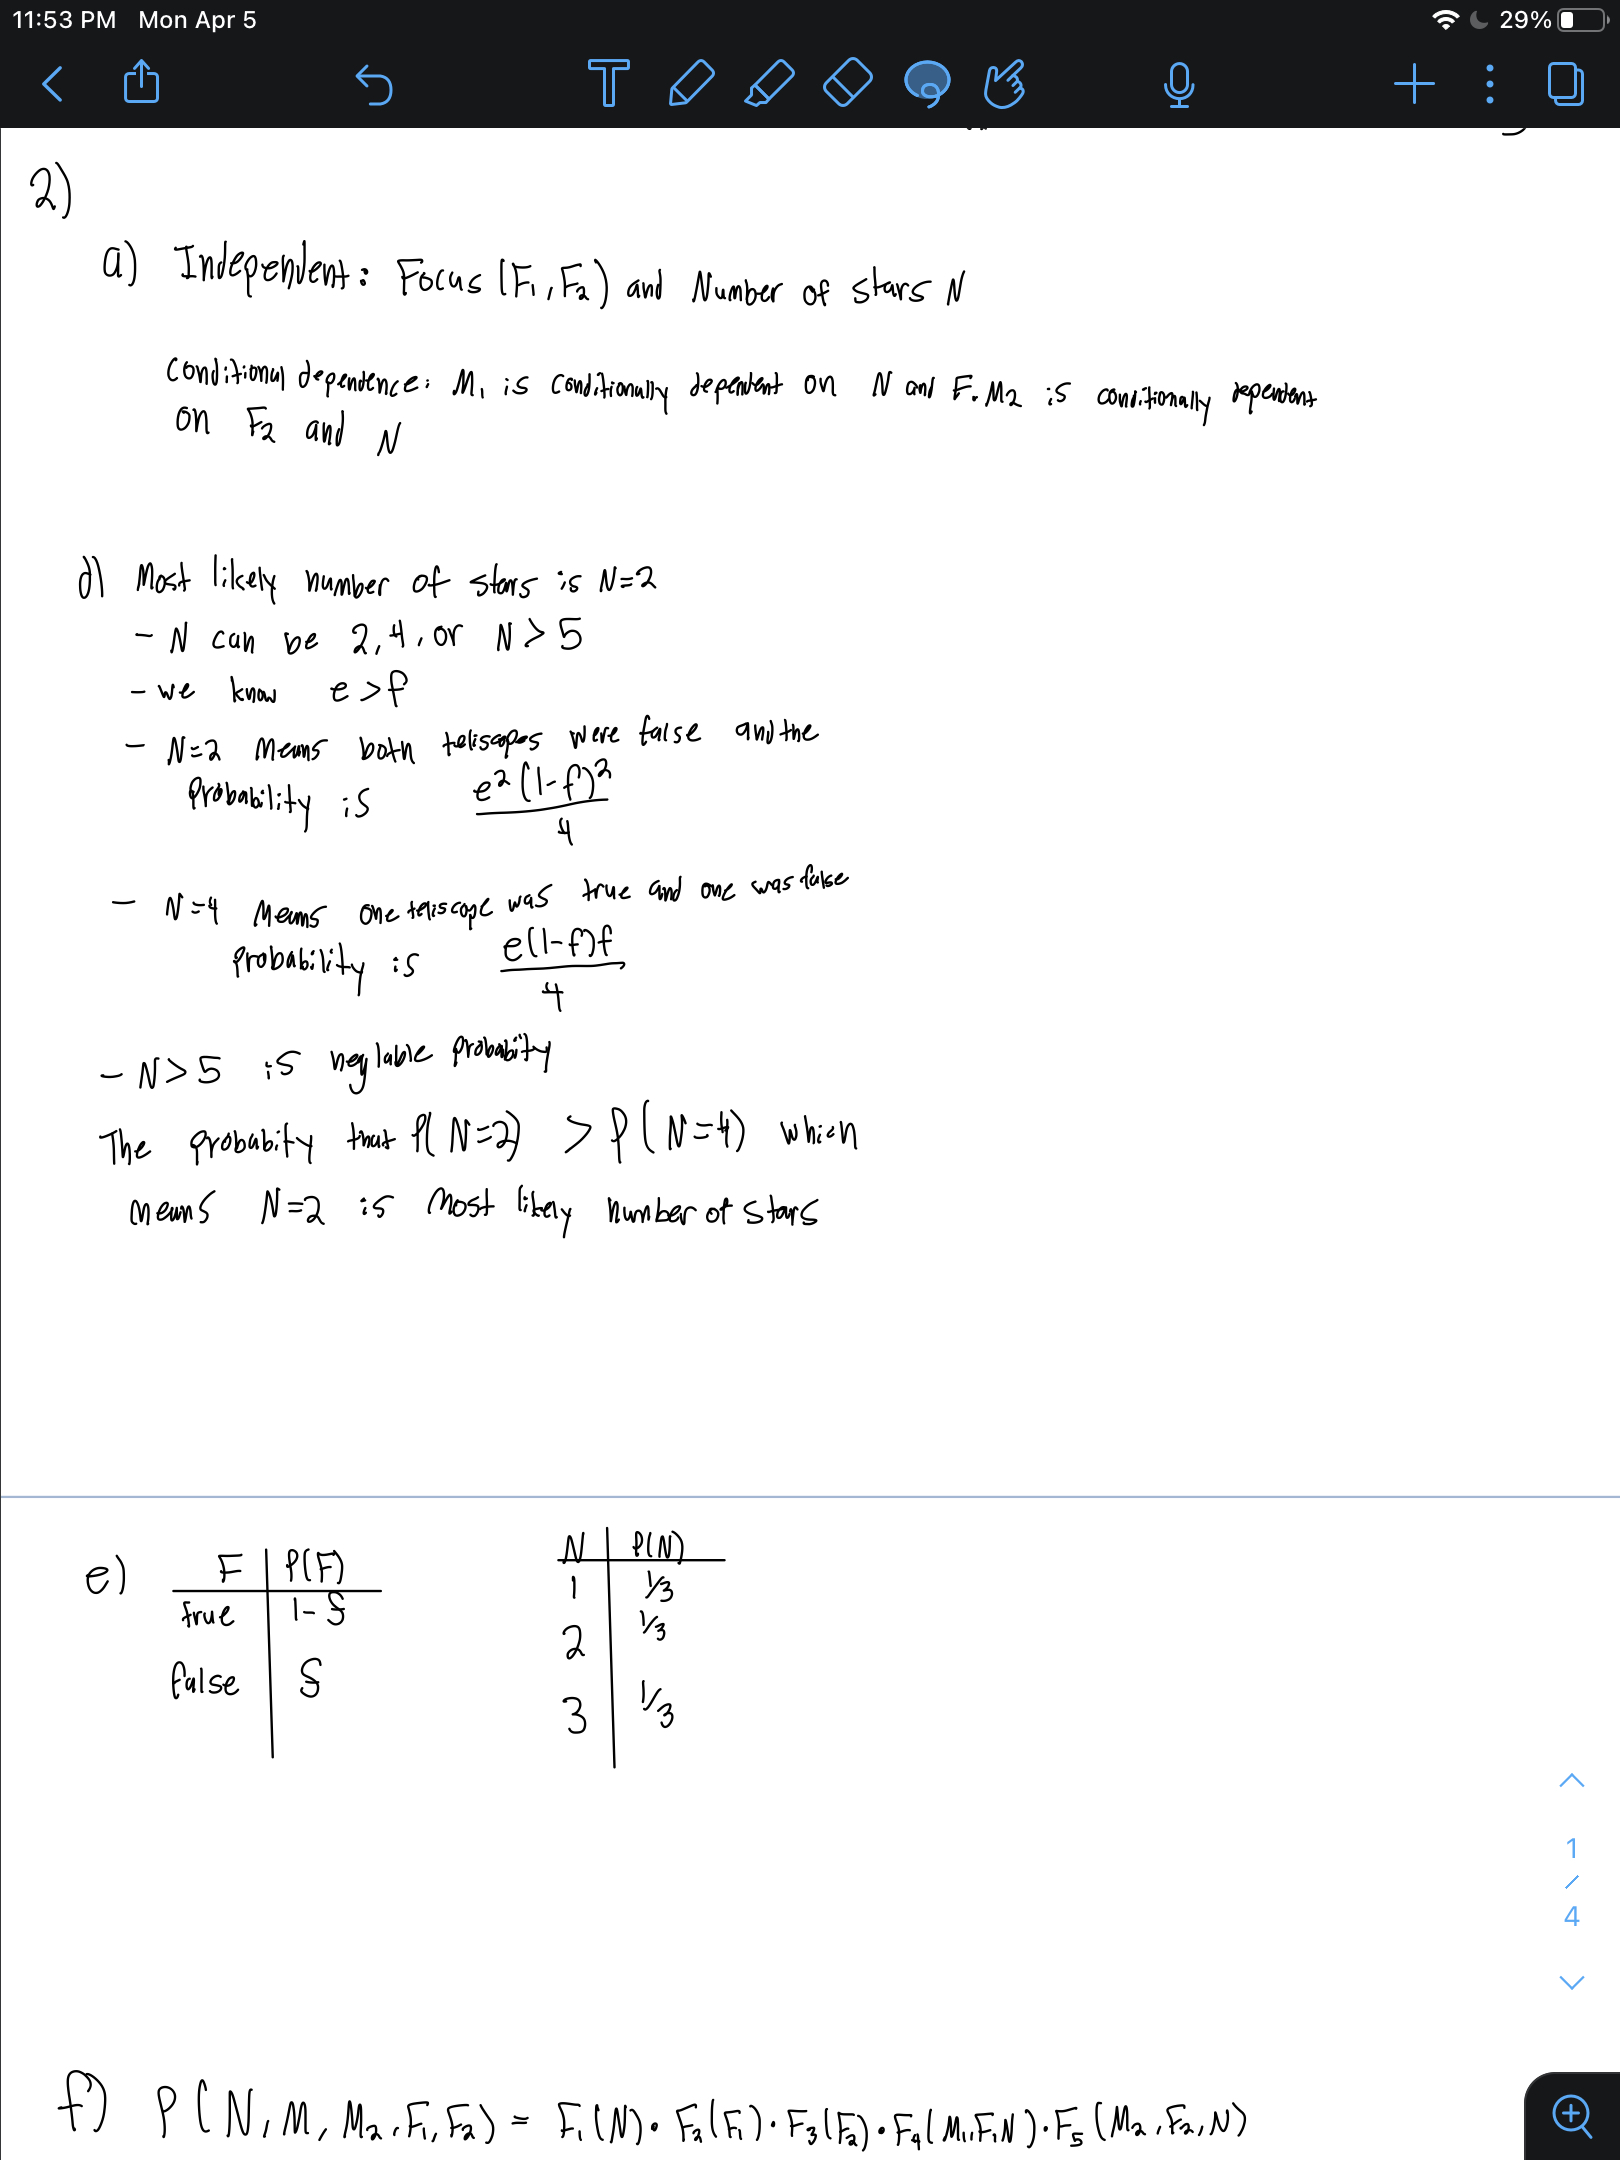 11:53 PM Mon Apr 5 29%
T
2)
a) Independent: Focus (F₁, F₂) and Number of stars N
Conditional dependence: M₁ is conditionally dependent on N and F. M2 is conditionally dependent
on F₂ and N
d) Most likely number of stars is N=2
- N can be 2,4, or N > 5
- we know e > f
- N=2 means both teliscopes were false and the
Probability is e²(1-f)²/4
- N=4 means one teliscope was true and one was false
Probability is e(1-f)f/4
- N > 5 is neglable probabity
The probabity that P(N=2) > P(N=4) which
means N=2 is most likely number of stars
e) F | P(F)
true | 1-f
false | f
N | P(N)
1 | 1/3
2 | 1/3
3 | 1/3
1
/
4
f) P(N, M, M₂, F₁, F₂) = F₁(N) · F₂(F₁) · F₃(F₂) · F₄(M₁,F₁N) · F₅(M₂, F₂, N)